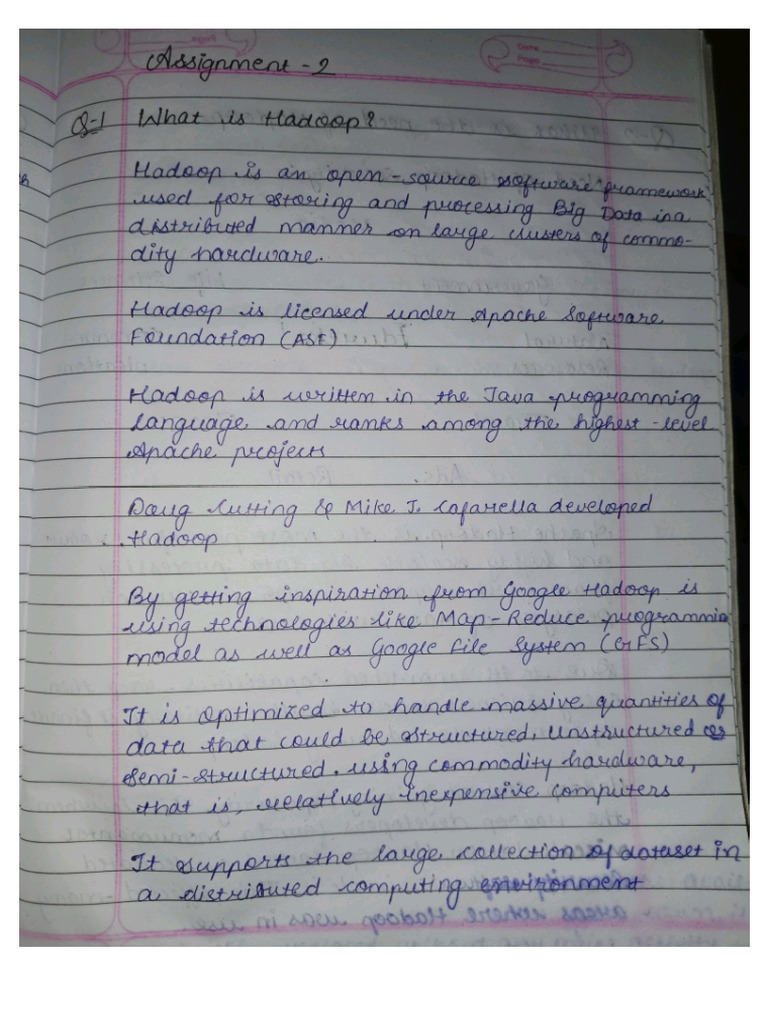 Assignment - 2
Q-1 What is Hadoop?
Hadoop is an open-source software framework
used for storing and processing Big Data in a
distributed manner on large clusters of commo-
dity hardware.
Hadoop is licensed under Apache Software
Foundation (ASF)
Hadoop is written in the Java programming
language and ranks among the highest-level
Apache projects
Doug Cutting & Mike J. Cafarella developed
Hadoop
By getting inspiration from Google Hadoop is
using technologies like Map-Reduce programmin
model as well as Google File System (GFS)
It is optimized to handle massive quantities of
data that could be structured, unstructured or
semi-structured. using commodity hardware,
that is, relatively inexpensive computers
It supports the large collection of dataset in
a distributed computing environment